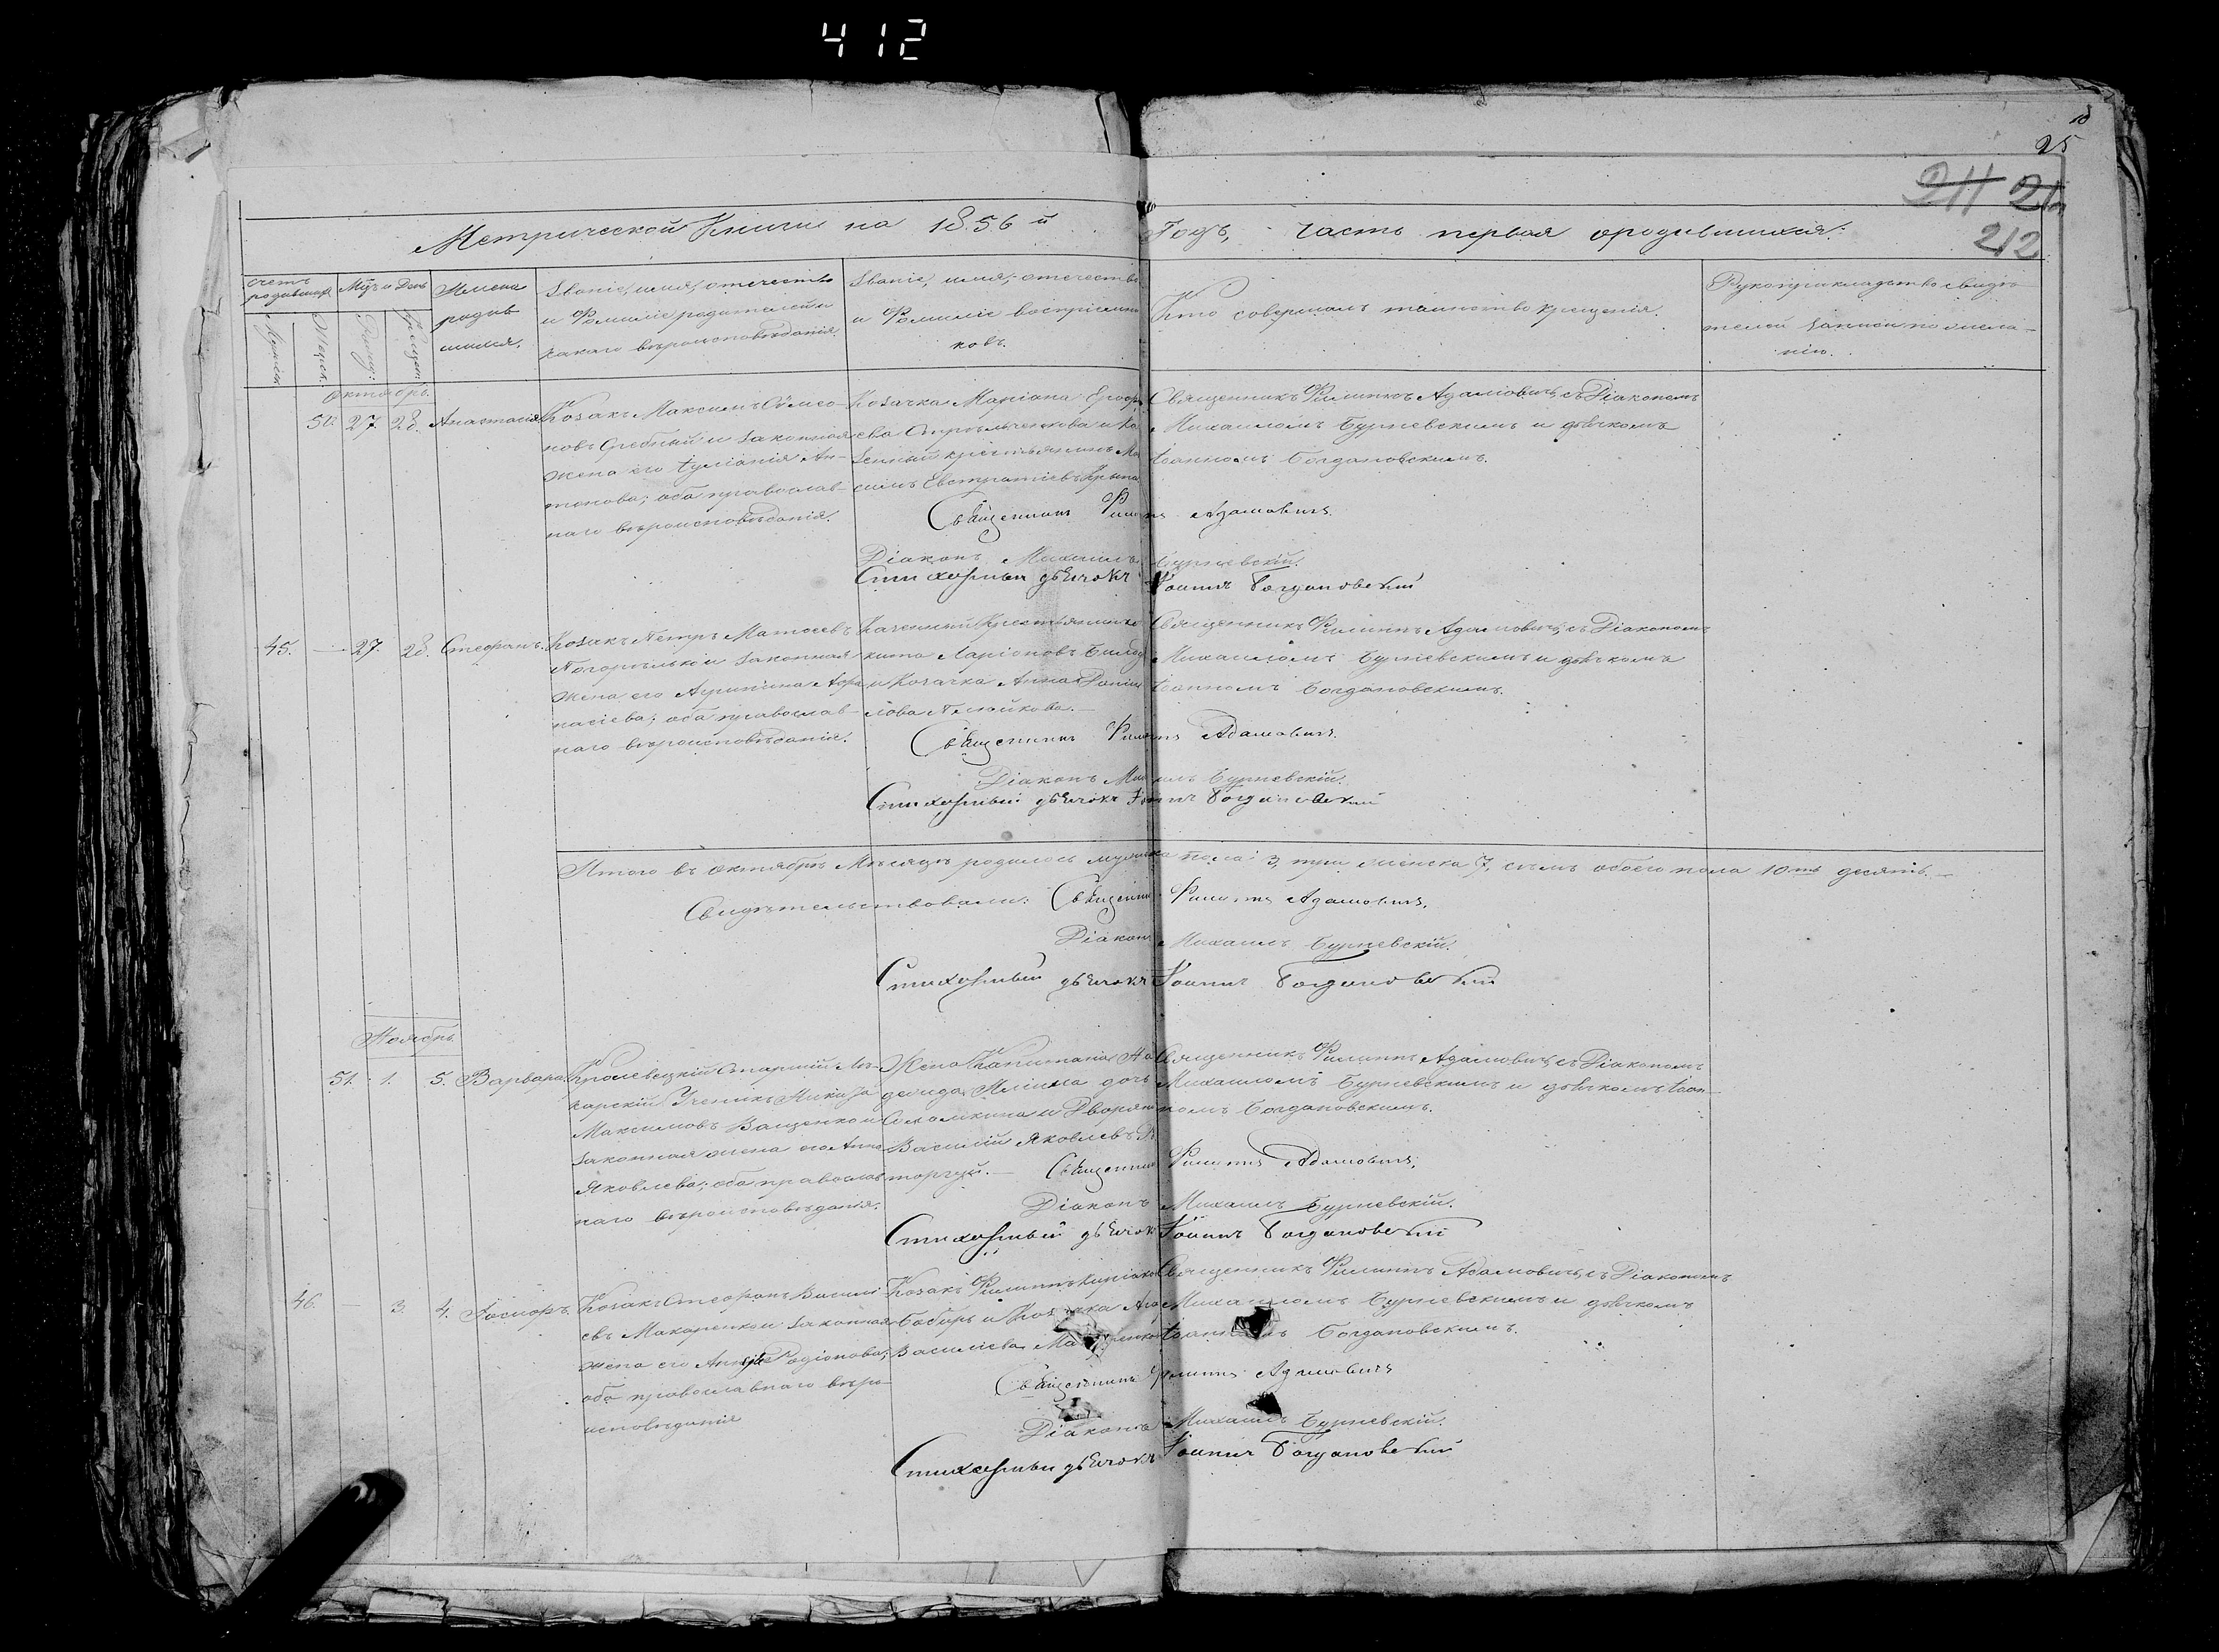 412
18
25
211 21
212
Метрической Книги на 1856й Годъ, часть первая о родившихся.
Счетъ родившихся
Мужеск.
Женск.
Мцъ и День
Рожд:
Крещен:
Имена
родив
шихся.
Званіе, имя, отчество
и Фамиліе родителей и
какаго вѣроисповѣданія.
Званіе, имя, отчество
и Фамиліе воспріемни
ковъ.
Кто совершалъ таинство крещенія.
Рукоприкладство свидѣ
телей записи по жела-
нію.
Октябрь.
50. 27. 28. Анастасія
Козакъ Максимъ Сѵмео-
новъ и законная
жена его Іуліанія Ан-
тонова; оба православ-
наго вѣроисповѣданія.
Козачка Маріана Егор
ева и Ка
зенный крестьянинъ Ма
симъ Евстратіевъ
Священникъ Филиппъ Адамовичь, съ Діакономъ
Михаиломъ Бурневскимъ и дьячкомъ
Іоанномъ Богдановскимъ.
Священникъ Филиппъ Адамовичъ.
Діаконъ Михаилъ Бурневскій.
Стихарный дьячокъ Іоаннъ Богдановскій
45. — 27. 28. Стефанъ.
Козакъ Петръ Матвеевъ
и законная
жена его Агрипина Афа
насіева; оба православ-
наго вѣроисповѣданія.
Казенный Крестьянинъ Ни
кита Ларіоновъ
и Козачка Анна Даніи
лова
Священникъ Филиппъ Адамовичь, съ Діакономъ
Михаиломъ Бурневскимъ и дьячкомъ
Іоанномъ Богдановскимъ.
Священникъ Филиппъ Адамовичъ
Діаконъ Михаилъ Бурневскій.
Стихарный дьячокъ Іоаннъ Богдановскій
Итого въ октябрѣ Мѣсяцѣ родилось мужеска пола 3, три женска 7, семь обоего пола 10ть десять.—
Свидѣтельствовали: Священникъ Филиппъ Адамовичъ.
Діаконъ Михаилъ Бурневскій.
Стихарный дьячокъ Іоаннъ Богдановскій
Ноябрь.
51. 1. 5. Варвара
Кролевецкій Старшій Лѣ-
карскій Ученикъ Никита
Максимовъ Ващенко и
законная жена его Анна
Яковлева; оба православ
наго вѣроисповѣданія.
Жена Капитана
дочь
и Дворян
Василій Яковлевъ
Священникъ Филиппъ Адамовичь, съ Діакономъ
Михаиломъ Бурневскимъ и дьячкомъ Іоан-
номъ Богдановскимъ.
Священникъ Филиппъ Адамовичъ.
Діаконъ Михаилъ Бурневскій.
Стихарный дьячокъ Іоаннъ Богдановскій
46. — 3. 4.
Козакъ Стефанъ Василі
евъ Макаренко и законная
жена его Родіонова;
оба православнаго вѣро-
исповѣданія
Козакъ Филиппъ Киріаков
Бобырь и Козачка
Василіева
Священникъ Филиппъ Адамовичь, съ Діакономъ
Михаиломъ Бурневскимъ и дьячкомъ
Іоанномъ Богдановскимъ.
Священникъ Филиппъ Адамовичъ
Діаконъ Михаилъ Бурневскій.
Стихарный дьячокъ Іоаннъ Богдановскій